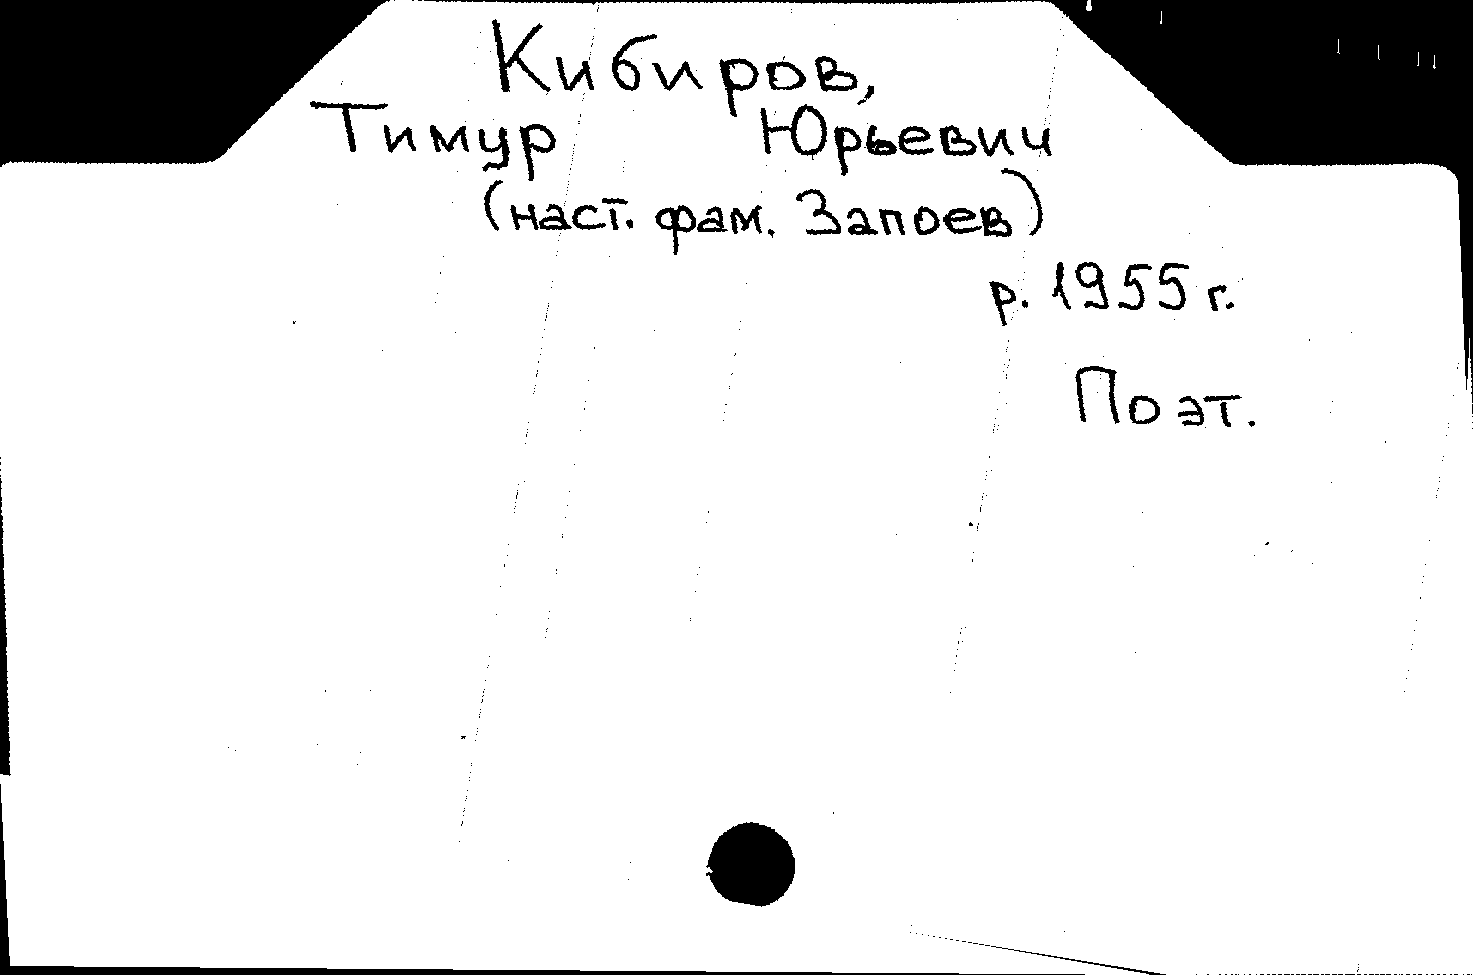 Кибиров,
Тимур Юрьевич
(наст. фам. Запоев)
р. 1955 г.
Поэт.